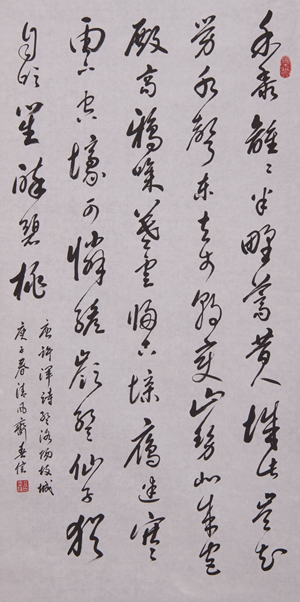 禾黍離々半野蒿昔人城此豈知
勞水聲東去市朝變山勢北来宫
殿高鴉噪暮雲歸古堞雁迷寒
雨下空壕可憐緱嶺登仙子猶
自吹笙醉碧桃
唐許渾詩登洛陽故城
庚子春清风齋